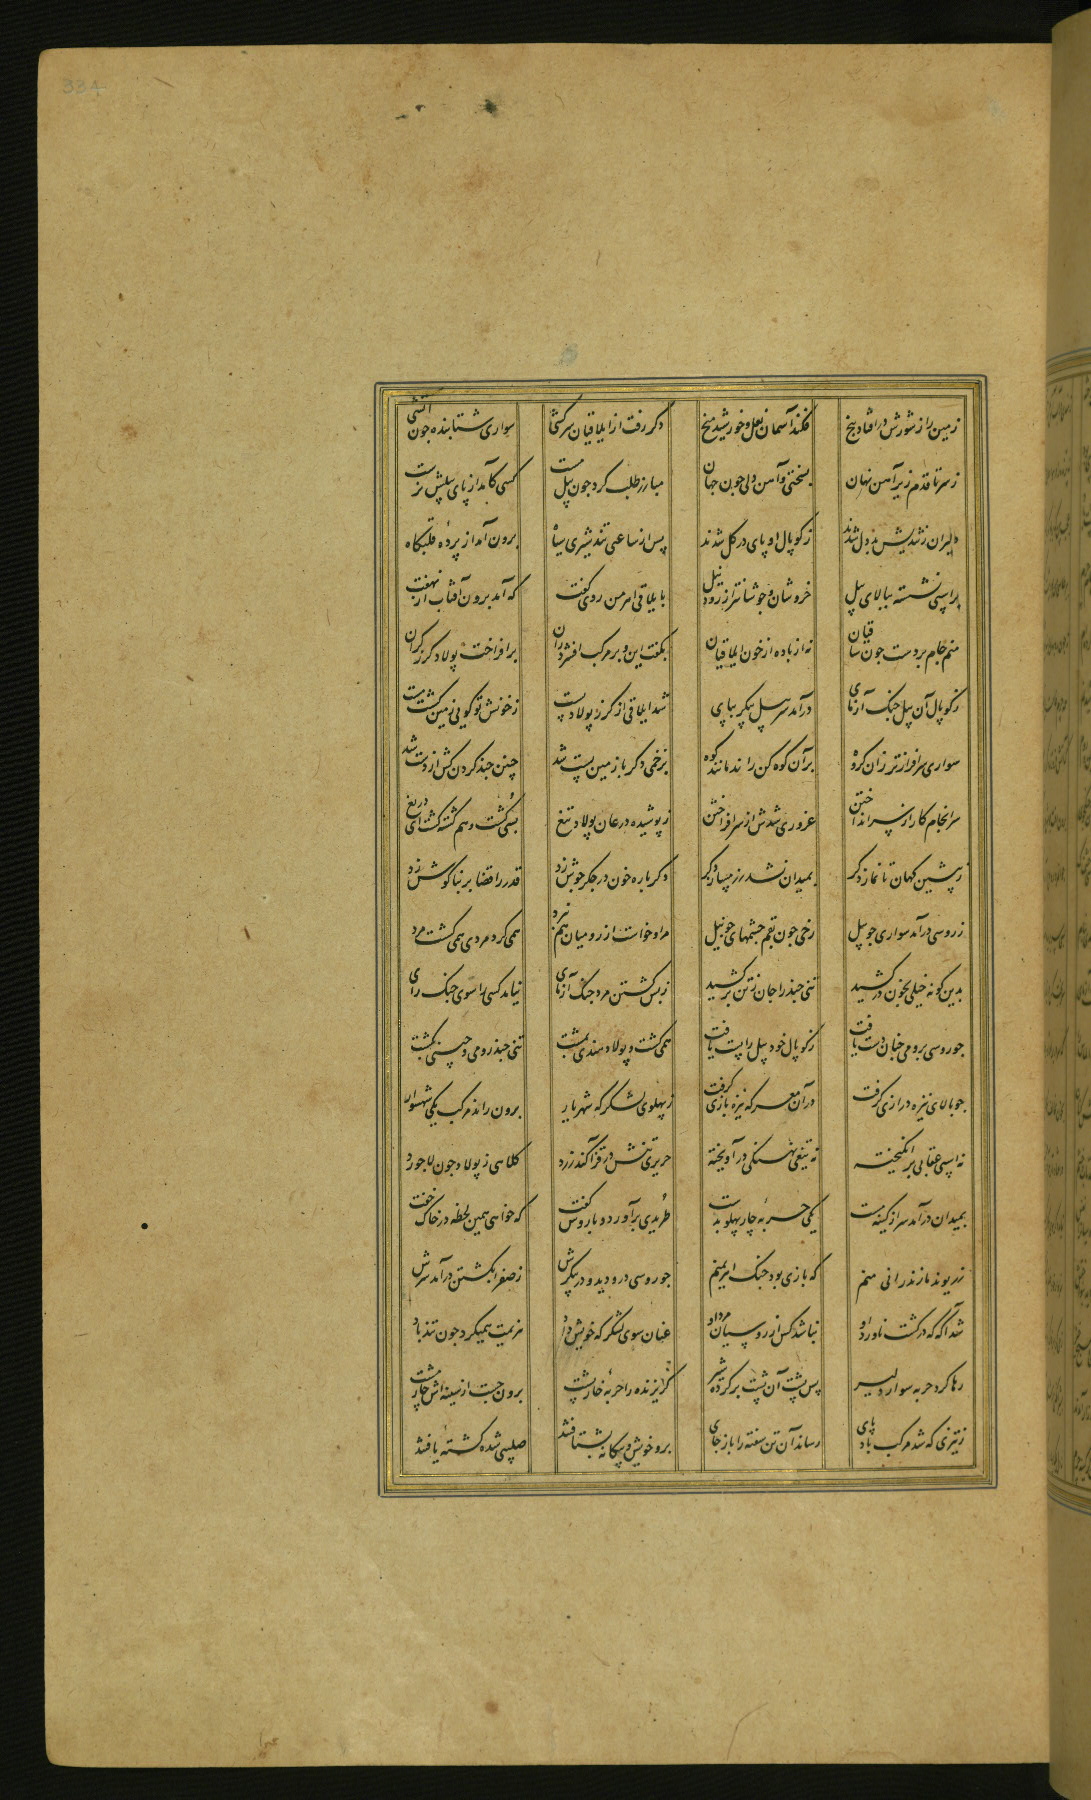 334
زمین را ز شورش در افتاد بیخ فکند آسمان نعل و خورشید میخ دگر رفت از ایلاقیان سرکشی سواری شتابنده چون آتشی
ز سر تا قدم زیر آهن نهان بسختی و آهن دلی چون جهان مبارز طلب کرد چون پیل مست کسی کآمد از پای پیلش نرست
دلیران ز تندیش بددل شدند ز کوپال او پای در گل شدند پس از ساعتی تند شیری سیاه برون آمد از پرده قلبگاه
بر اسپی نشسته ببالای پیل خروشان و جوشان تر از رود نیل بایلاقی اهرمن روی گفت که آمد برون آفتاب از نهفت
منم جام بر دست چون ساقیان نه از باده از خون ایلاقیان بگفت این و بر مرکب افشرد ران برافراخت پولاد گرز گران
ز کوپال آن پیل جنگ آزمای در آمد سر پیل پیکر بپای شد ایلاقی از گرز پولاد پست ز خونش تو گویی زمین گشت مست
سواری سرافرازتر زان گروه بر آن کوه کن راند مانند کوه بزخمی دگر با زمین پست شد چنین چند گردن کش از دست شد
سرانجام کار از سر انداختن غروری شدش از سر افراختن ز پوشیده درعان پولاد تیغ بسی کشت و هم کشته گشت ای دریغ
ز پیشین گهان تا نماز دگر بمیدان نشد رزمساز دگر دگر باره خون در جگر جوش زد قدر را قضا بر بناگوش زد
ز روسی در آمد سواری چو پیل رخی چون بقم چشمهای چو نیل مراد خواست از رومیان هم نبرد همی کرد مردی همی کشت مرد
بدین گونه خیلی بخون در کشید تنی چند را جان ز تن بر کشید ز بس کشتن مرد جنگ آزمای نیامد کسی را سوی جنگ رای
چو روسی برومی چنان دست یافت ز کوپال خود پیل را پست یافت همی گشت و پولاد هندی بمشت تنی چند رومی و چینی بکشت
چو بالای نیزه درازی گرفت در آن معرکه نیزه بازی گرفت ز پهلوی لشکرگه شهریار برون راند مرکب یکی شهسوار
نه اسپی عقابی بر انگیخته نه تیغی نهنگی در آویخته حریری تنش در قزاگند زرد کلاهی ز پولاد چون لاجورد
بمیدان در آمد سر از کینه مست یکی حربه چارپهلو بدست طریدی بر آورد و با روس گفت که خواهی همین لحظه در خاک خفت
زریوند مازندرانی منم که بازی بود جنگ اهریمنم چو روسی درو دید و در پیکرش ز صفرا بگشتن در آمد سرش
شد آگه که در گشت ناورد او نباشد کس از روسیان مرد او عنان سوی لشکرگه خویش داد هزیمت همیکرد چون تند باد
رها کرد حربه سوار دلیر پس پشت آن پشت بر کرده شیر گریزنده را حربه خارپشت برون جست از سینه اش چار مشت
ز تیزی که شد مرکب بادپای رساند آن تن سفته را باز جای برو خویش و بیگانه بشتافتند صلیبی شده کشته یافتند